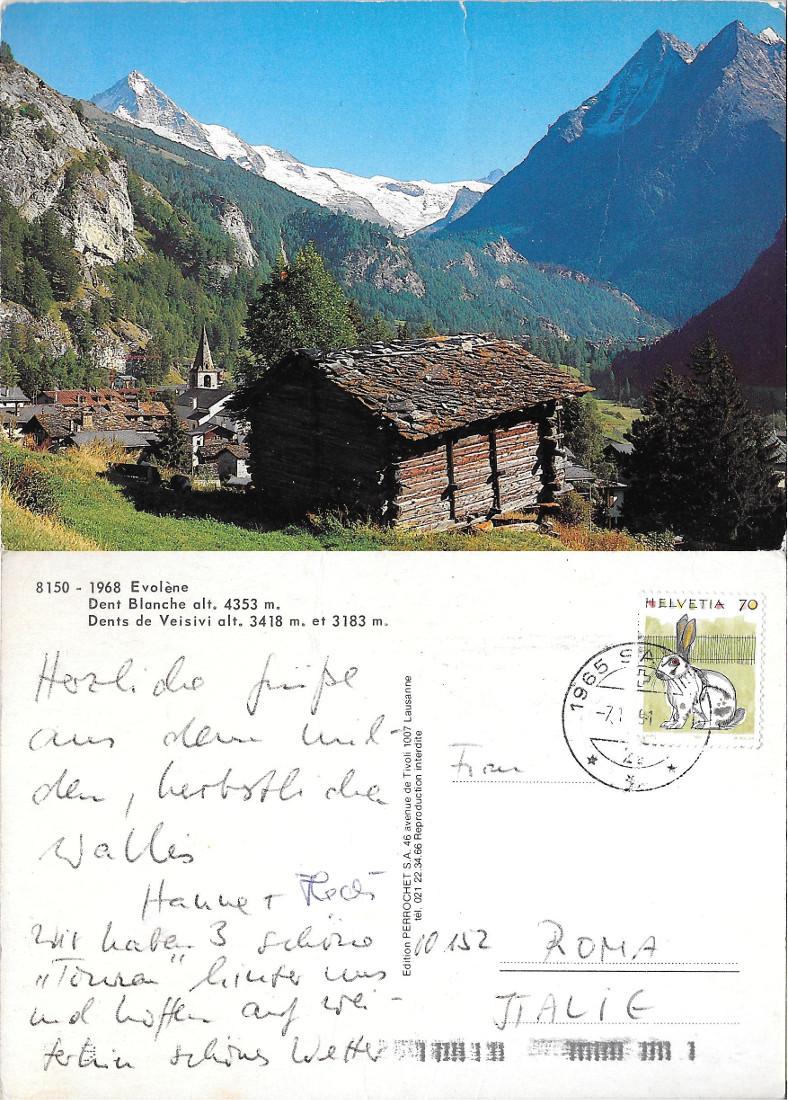 8150 - 1968 Evolène
Dent Blanche alt. 4353 m.
Dents de Veisivi alt. 3418 m. et 3183 m.
HELVETIA 70
1965
Herzliche Grüße
aus dem mil-
den, herbstlichen
Wallis
Hanne +
Wir haben 3 schöne
„Touren" hinter uns
und hoffen auf wei-
terhin schönes Wetter
Edition PERROCHET S.A. 46 avenue de Tivoli 1007 Lausanne
tél. 021 22.34.66 Reproduction interdite
Frau
10152 ROMA
ITALIE